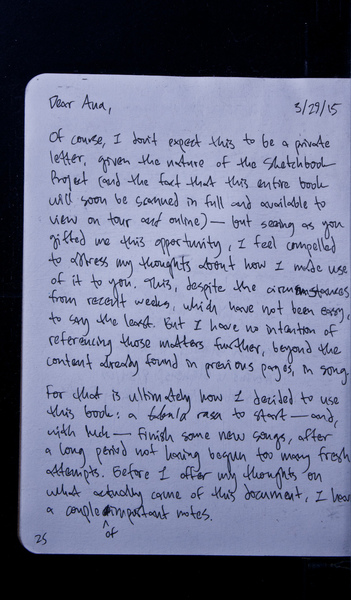 Dear Ana,
3/29/15
Of course, I don't expect this to be a private
letter, given the nature of the Sketchbook
Project (and the fact that this entire book
will soon be scanned in full and available to
view on tour and online) — but seeing as you
gifted me this opportunity, I feel compelled
to address my thoughts about how I made use
of it to you. This, despite the circumstances
from recent weeks, which have not been easy,
to say the least. But I have no intention of
referencing those matters further, beyond the
content already found in previous pages, in song.
For that is ultimately how I decided to use
this book: a tabula rasa to start — and,
with luck — finish some new songs, after
a long period not having begun too many fresh
attempts. Before I offer my thoughts on
what actually came of this document, I have
a couple of important notes.
25